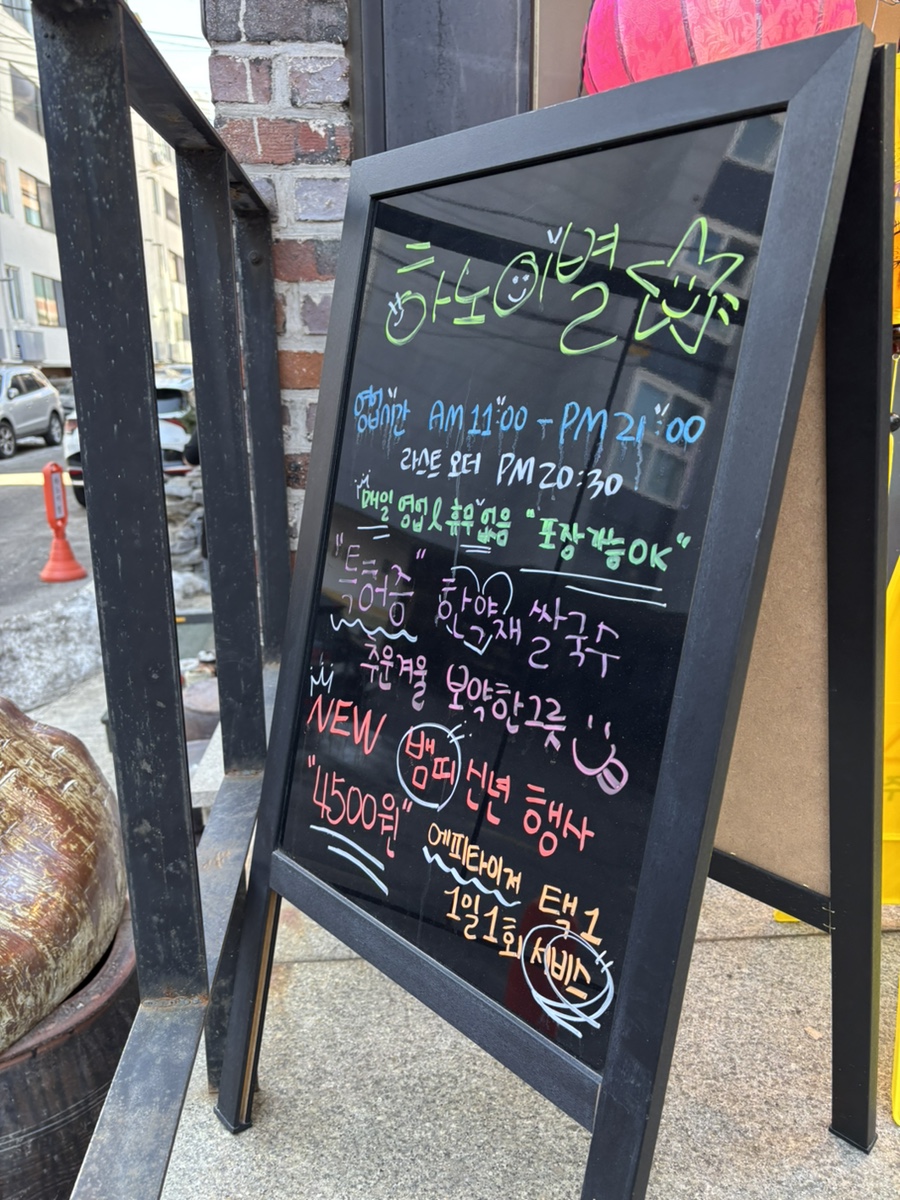 하노이별
영업시간 AM 11:00 - PM 21:00
라스트 오더 PM 20:30
매일 영업 & 휴무없음 "포장가능OK"
"특허증" 한약재 쌀국수
추운겨울 보약한그릇
NEW 뱀띠 신년 행사
"4500원"
에피타이저 택1
1일1회 서비스